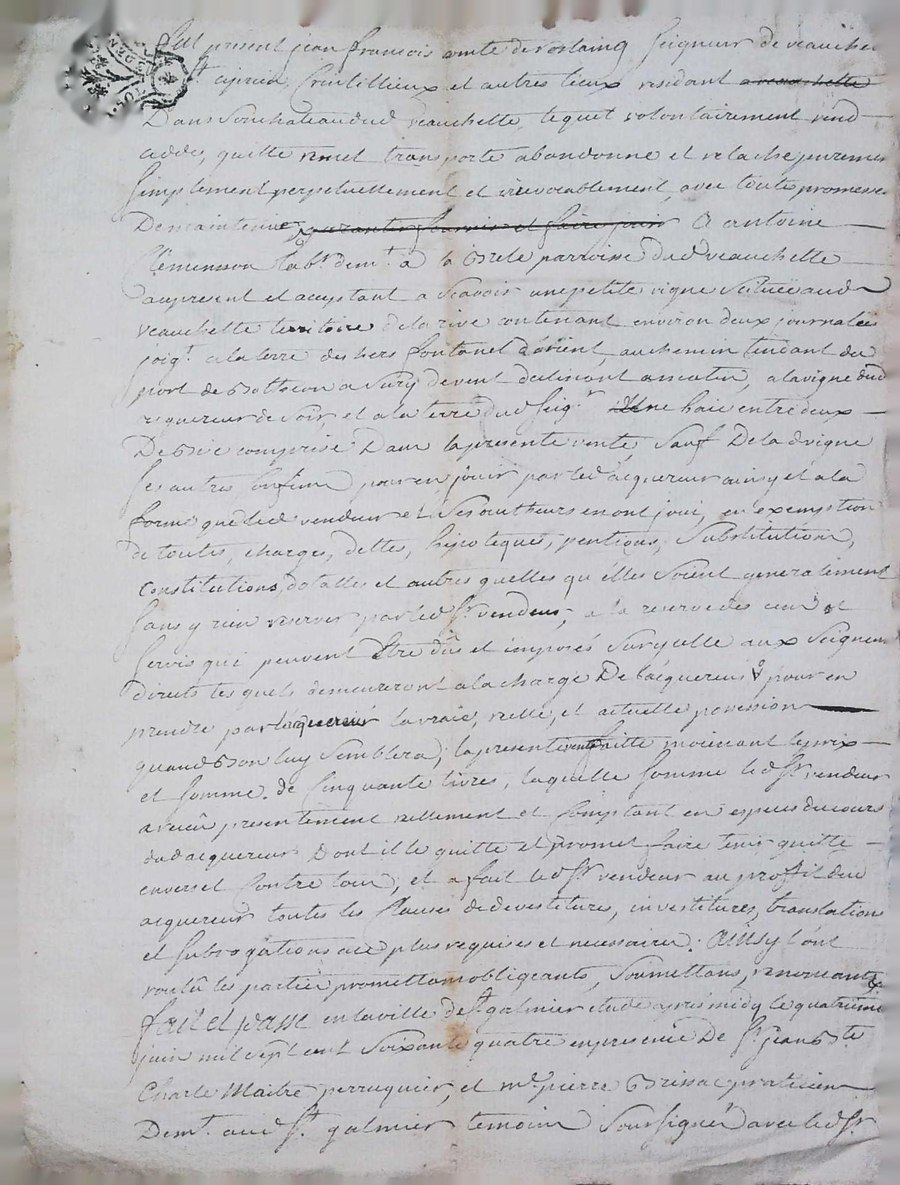 Fut present jean francois comte de rostaing Seigneur de veauchet
St ciprien, Crintillieux et autres lieux residant a veauchette
Dans Son chateau dud veauchette, lequel volontairement vend
cedde, quitte remet transporte abandonne et relache purement
Simplement perpetuellement et irrevocablement, avec toutes promesses
De maintenir, garantir fournir et faire jouir a antoine
Clemenson labr demt. a la paroisse dud veauchette
acy present et acceptant a Scavoir une petite vigne Scituée aud
veauchette territoire de la rive contenant environ deux journalées
joigt. a la terre des hers fontanel d'orient, au chemin tendant du
port de Bouthéon a Sury de vent declinant a matin, a la vigne dud
acquereur de Soir, et a la terre dud Seigr. Une haie entre deux
De Bize comprise Dans la presente vente, Sauf De lad vigne
Ses autres Confins pour en jouir par led acquereur ainsy et a la
forme que led vendeur et Ses autheurs en ont joui, en exemption
de toutes, charges, dettes, hipoteques, pentions, Substitutions,
Constitutions dotalles et autres quelles qu'elles Soient generalement
Sans y rien reserver par led Sr. vendeur, a la reserve des cens et
Servis qui peuvent Etre dûs et imposés Sur ycelle aux Seigneurs
directs lesquels demeureront a la charge De l'acquereur pour en
prendre par l'acquereur la vraie, reelle, et actuelle possession
quand Bon luy Semblera; la presente vente faitte moienant le prix
et Somme de Cinquante livres, laquelle Somme led Sr. vendeur
a recû presentement reellement et Comptant en especes du cours
dud acquereur Dont il le quitte et promet faire tenir quitte
envers et Contre tous; et a fait led Sr. vendeur au proffit dud
acquereur toutes les Clauses de devestitures, investitures, translations
et Subrogations a ce plus requises et necessaires: Ainsy l'ont
voulû les parties promettans obligeants, Soumettans, renonceants, &
fait et passé en la ville de St. galmier etude apres midy le quatrieme
juin mil Sept cent Soixante quatre en presence De Sr. jean Bte
Charle Maitre perruquier, et me. pierre Brissac praticien
Demt. aud St. galmier temoins Soussignés avec led Sr.